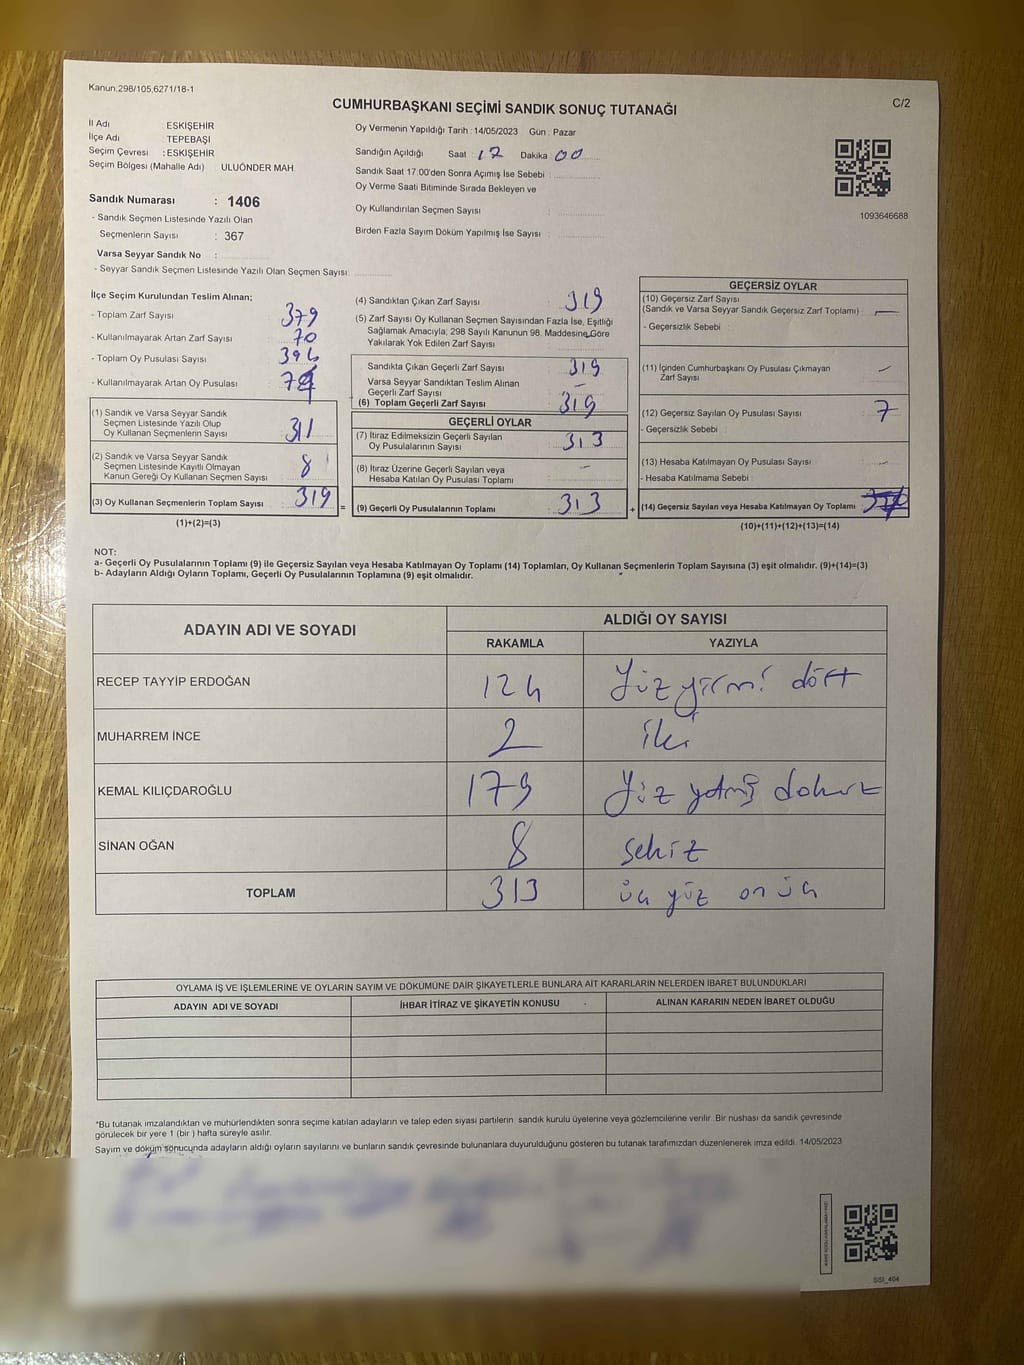 Kanun,298/105,6271/18-1
C/2
CUMHURBAŞKANI SEÇİMİ SANDIK SONUÇ TUTANAĞI
İl Adı : ESKİŞEHİR
İlçe Adı : TEPEBAŞI
Seçim Çevresi : ESKİŞEHİR
Seçim Bölgesi (Mahalle Adı) : ULUÖNDER MAH.
Sandık Numarası : 1406
- Sandık Seçmen Listesinde Yazılı Olan
Seçmenlerin Sayısı : 367
Varsa Seyyar Sandık No :
- Seyyar Sandık Seçmen Listesinde Yazılı Olan Seçmen Sayısı:
Oy Vermenin Yapıldığı Tarih : 14/05/2023 Gün : Pazar
Sandığın Açıldığı Saat : 17 Dakika : 00
Sandık Saat 17:00'den Sonra Açımış İse Sebebi :
Oy Verme Saati Bitiminde Sırada Bekleyen ve
Oy Kullandırılan Seçmen Sayısı :
Birden Fazla Sayım Döküm Yapılmış İse Sayısı :
1093646688
İlçe Seçim Kurulundan Teslim Alınan;
- Toplam Zarf Sayısı : 379
- Kullanılmayarak Artan Zarf Sayısı : 70
- Toplam Oy Pusulası Sayısı : 394
- Kullanılmayarak Artan Oy Pusulası :
(1) Sandık ve Varsa Seyyar Sandık
Seçmen Listesinde Yazılı Olup
Oy Kullanan Seçmenlerin Sayısı : 311
(2) Sandık ve Varsa Seyyar Sandık
Seçmen Listesinde Kayıtlı Olmayan
Kanun Gereği Oy Kullanan Seçmen Sayısı : 8
(3) Oy Kullanan Seçmenlerin Toplam Sayısı : 319
(1)+(2)=(3)
(4) Sandıktan Çıkan Zarf Sayısı : 319
(5) Zarf Sayısı Oy Kullanan Seçmen Sayısından Fazla İse, Eşitliği
Sağlamak Amacıyla; 298 Sayılı Kanunun 98. Maddesine Göre
Yakılarak Yok Edilen Zarf Sayısı :
Sandıkta Çıkan Geçerli Zarf Sayısı : 319
Varsa Seyyar Sandıktan Teslim Alınan
Geçerli Zarf Sayısı : -
(6) Toplam Geçerli Zarf Sayısı : 319
GEÇERLİ OYLAR
(7) İtiraz Edilmeksizin Geçerli Sayılan
Oy Pusulalarının Sayısı : 313
(8) İtiraz Üzerine Geçerli Sayılan veya
Hesaba Katılan Oy Pusulası Toplamı : -
= (9) Geçerli Oy Pusulalarının Toplamı : 313
GEÇERSİZ OYLAR
(10) Geçersiz Zarf Sayısı
(Sandık ve Varsa Seyyar Sandık Geçersiz Zarf Toplamı) : -
- Geçersizlik Sebebi :
(11) İçinden Cumhurbaşkanı Oy Pusulası Çıkmayan
Zarf Sayısı : -
(12) Geçersiz Sayılan Oy Pusulası Sayısı : 7
- Geçersizlik Sebebi :
(13) Hesaba Katılmayan Oy Pusulası Sayısı : -
- Hesaba Katılmama Sebebi :
+ (14) Geçersiz Sayılan veya Hesaba Katılmayan Oy Toplamı :
(10)+(11)+(12)+(13)=(14)
NOT:
a- Geçerli Oy Pusulalarının Toplamı (9) ile Geçersiz Sayılan veya Hesaba Katılmayan Oy Toplamı (14) Toplamları, Oy Kullanan Seçmenlerin Toplam Sayısına (3) eşit olmalıdır. (9)+(14)=(3)
b- Adayların Aldığı Oyların Toplamı, Geçerli Oy Pusulalarının Toplamına (9) eşit olmalıdır.
ADAYIN ADI VE SOYADI
ALDIĞI OY SAYISI
RAKAMLA YAZIYLA
RECEP TAYYİP ERDOĞAN 124 Yüz yirmi dört
MUHARREM İNCE 2 iki
KEMAL KILIÇDAROĞLU 179 Yüz yetmiş dokuz
SİNAN OĞAN 8 sekiz
TOPLAM 313 üç yüz on üç
OYLAMA İŞ VE İŞLEMLERİNE VE OYLARIN SAYIM VE DÖKÜMÜNE DAİR ŞİKAYETLERLE BUNLARA AİT KARARLARIN NELERDEN İBARET BULUNDUKLARI
ADAYIN ADI VE SOYADI İHBAR İTİRAZ VE ŞİKAYETİN KONUSU ALINAN KARARIN NEDEN İBARET OLDUĞU
*Bu tutanak imzalandıktan ve mühürlendikten sonra seçime katılan adayların ve talep eden siyasi partilerin sandık kurulu üyelerine veya gözlemcilerine verilir. Bir nüshası da sandık çevresinde
görülecek bir yere 1 (bir ) hafta süreyle asılır.
Sayım ve döküm sonucunda adayların aldığı oyların sayılarını ve bunların sandık çevresinde bulunanlara duyurulduğunu gösteren bu tutanak tarafımızdan düzenlenerek imza edildi. 14/05/2023
SSI_404